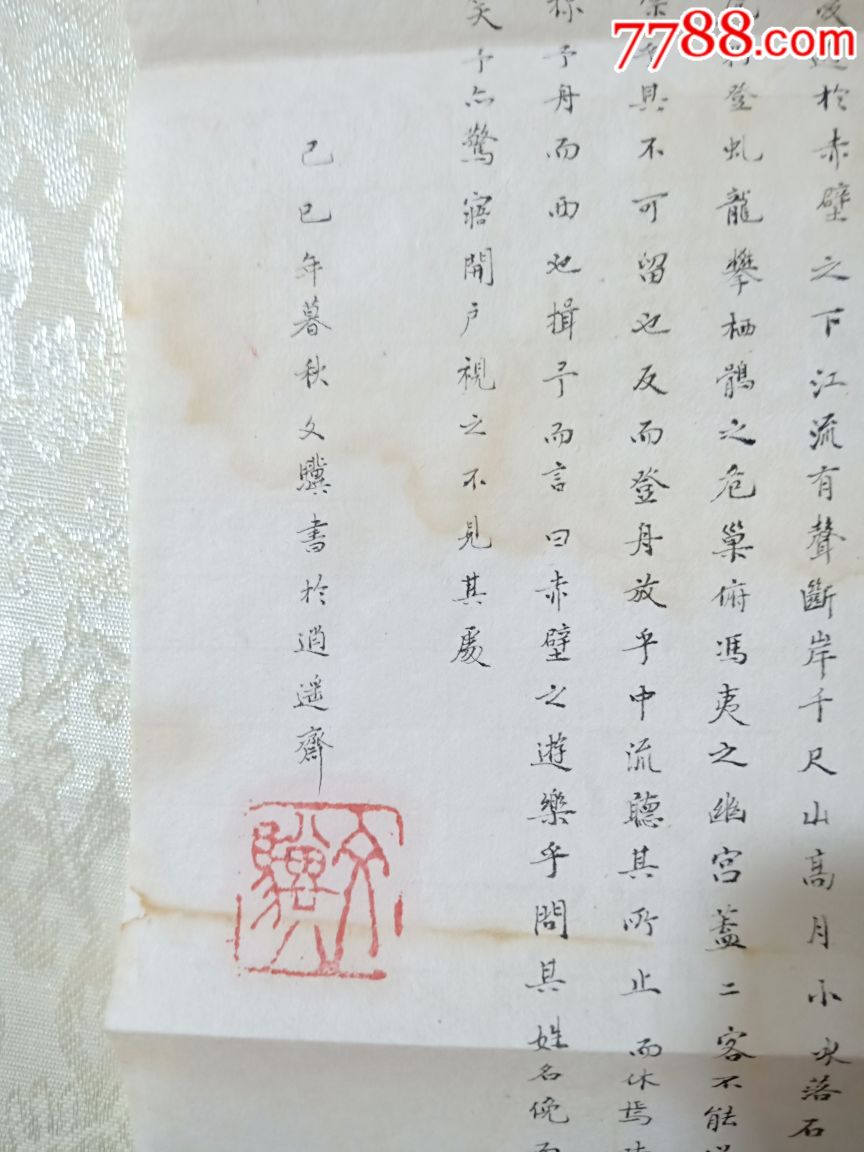 7788.com
於赤壁之下江流有聲斷岸千尺山高月小水落石
登虬龍攀栖鶻之危巢俯馮夷之幽宮蓋二客不能
具不可留也反而登舟放乎中流聽其所止而休焉
予舟而西也揖予而言曰赤壁之遊樂乎問其姓名俛而
笑予亦驚寤開户視之不見其處
己巳年暮秋文驥書於逍遥齋
文驥